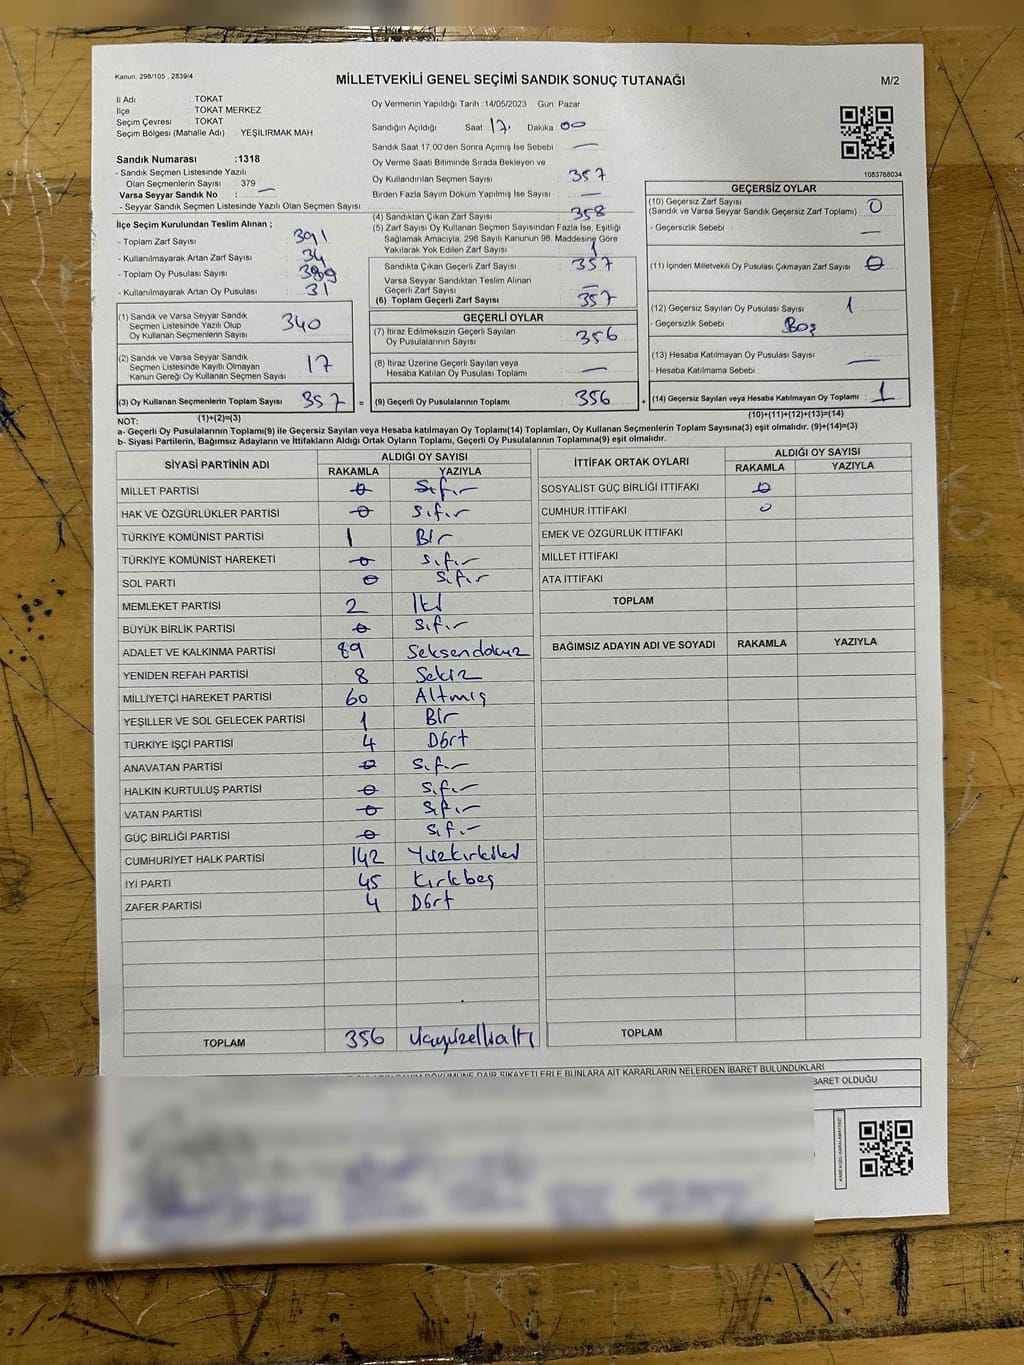 Kanun: 298/105 , 2839/4
MİLLETVEKİLİ GENEL SEÇİMİ SANDIK SONUÇ TUTANAĞI
M/2
İl Adı : TOKAT
İlçe : TOKAT MERKEZ
Seçim Çevresi : TOKAT
Seçim Bölgesi (Mahalle Adı) : YEŞİLIRMAK MAH
Sandık Numarası :1318
- Sandık Seçmen Listesinde Yazılı
Olan Seçmenlerin Sayısı : 379
Varsa Seyyar Sandık No : —
- Seyyar Sandık Seçmen Listesinde Yazılı Olan Seçmen Sayısı:
İlçe Seçim Kurulundan Teslim Alınan ;
- Toplam Zarf Sayısı 391
- Kullanılmayarak Artan Zarf Sayısı 34
- Toplam Oy Pusulası Sayısı 389
- Kullanılmayarak Artan Oy Pusulası 31
(1) Sandık ve Varsa Seyyar Sandık
Seçmen Listesinde Yazılı Olup
Oy Kullanan Seçmenlerin Sayısı 340
(2) Sandık ve Varsa Seyyar Sandık
Seçmen Listesinde Kayıtlı Olmayan
Kanun Gereği Oy Kullanan Seçmen Sayısı 17
(3) Oy Kullanan Seçmenlerin Toplam Sayısı 357 =
(1)+(2)=(3)
Oy Vermenin Yapıldığı Tarih :14/05/2023 Gün: Pazar
Sandığın Açıldığı Saat 17. Dakika 00
Sandık Saat 17.00'den Sonra Açımış İse Sebebi : —
Oy Verme Saati Bitiminde Sırada Bekleyen ve
Oy Kullandırılan Seçmen Sayısı 357
Birden Fazla Sayım Döküm Yapılmış İse Sayısı —
(4) Sandıktan Çıkan Zarf Sayısı 358
(5) Zarf Sayısı Oy Kullanan Seçmen Sayısından Fazla İse, Eşitliği
Sağlamak Amacıyla, 298 Sayılı Kanunun 98. Maddesine Göre
Yakılarak Yok Edilen Zarf Sayısı 1
Sandıkta Çıkan Geçerli Zarf Sayısı 357
Varsa Seyyar Sandıktan Teslim Alınan
Geçerli Zarf Sayısı —
(6) Toplam Geçerli Zarf Sayısı 357
GEÇERLİ OYLAR
(7) İtiraz Edilmeksizin Geçerli Sayılan
Oy Pusulalarının Sayısı 356
(8) İtiraz Üzerine Geçerli Sayılan veya
Hesaba Katılan Oy Pusulası Toplamı —
(9) Geçerli Oy Pusulalarının Toplamı 356 +
1083768034
GEÇERSİZ OYLAR
(10) Geçersiz Zarf Sayısı
(Sandık ve Varsa Seyyar Sandık Geçersiz Zarf Toplamı) : 0
- Geçersizlik Sebebi : —
(11) İçinden Milletvekili Oy Pusulası Çıkmayan Zarf Sayısı 0
(12) Geçersiz Sayılan Oy Pusulası Sayısı 1
- Geçersizlik Sebebi : Boş
(13) Hesaba Katılmayan Oy Pusulası Sayısı —
- Hesaba Katılmama Sebebi :
(14) Geçersiz Sayılan veya Hesaba Katılmayan Oy Toplamı : 1
(10)+(11)+(12)+(13)=(14)
NOT:
a- Geçerli Oy Pusulalarının Toplamı(9) ile Geçersiz Sayılan veya Hesaba katılmayan Oy Toplamı(14) Toplamları, Oy Kullanan Seçmenlerin Toplam Sayısına(3) eşit olmalıdır. (9)+(14)=(3)
b- Siyasi Partilerin, Bağımsız Adayların ve İttifakların Aldığı Ortak Oyların Toplamı, Geçerli Oy Pusulalarının Toplamına(9) eşit olmalıdır.
SİYASİ PARTİNİN ADI ALDIĞI OY SAYISI
RAKAMLA YAZIYLA
MİLLET PARTİSİ 0 Sıfır
HAK VE ÖZGÜRLÜKLER PARTİSİ 0 Sıfır
TÜRKİYE KOMÜNİST PARTİSİ 1 Bir
TÜRKİYE KOMÜNİST HAREKETİ 0 Sıfır
SOL PARTİ 0 Sıfır
MEMLEKET PARTİSİ 2 İki
BÜYÜK BİRLİK PARTİSİ 0 Sıfır
ADALET VE KALKINMA PARTİSİ 89 Seksendokuz
YENİDEN REFAH PARTİSİ 8 Sekiz
MİLLİYETÇİ HAREKET PARTİSİ 60 Altmış
YEŞİLLER VE SOL GELECEK PARTİSİ 1 Bir
TÜRKİYE İŞÇİ PARTİSİ 4 Dört
ANAVATAN PARTİSİ 0 Sıfır
HALKIN KURTULUŞ PARTİSİ 0 Sıfır
VATAN PARTİSİ 0 Sıfır
GÜÇ BİRLİĞİ PARTİSİ 0 Sıfır
CUMHURİYET HALK PARTİSİ 142 Yüzkırkiki
İYİ PARTİ 45 Kırkbeş
ZAFER PARTİSİ 4 Dört
TOPLAM 356 üçyüzellialtı
İTTİFAK ORTAK OYLARI ALDIĞI OY SAYISI
RAKAMLA YAZIYLA
SOSYALİST GÜÇ BİRLİĞİ İTTİFAKI 0
CUMHUR İTTİFAKI 0
EMEK VE ÖZGÜRLÜK İTTİFAKI
MİLLET İTTİFAKI
ATA İTTİFAKI
TOPLAM
BAĞIMSIZ ADAYIN ADI VE SOYADI RAKAMLA YAZIYLA
TOPLAM
DÖKÜMÜNE DAİR ŞİKAYETLERLE BUNLARA AİT KARARLARIN NELERDEN İBARET BULUNDUKLARI
BARET OLDUĞU